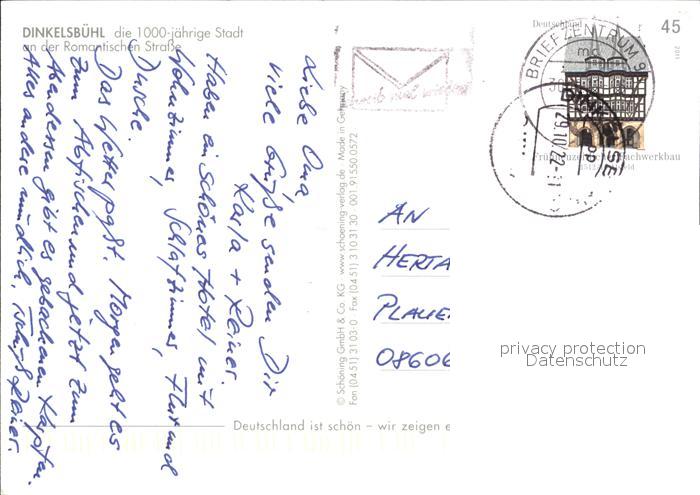 DINKELSBÜHL die 1000-jährige Stadt
an der Romantischen Straße
Liebe Oma,
viele Grüße senden Dir
Karla + Rainer.
Haben ein schönes Hotel mit
Wohnzimmer, Schlafzimmer, Flur und
Dusche.
Das Wetter paßt. Morgen geht es
zum Abfischen und jetzt zum
Abendessen gibt es gebackenen Karpfen.
Alles andere mündlich, Tschüß Rainer.
© Schöning GmbH & Co. KG · www.schoening-verlag.de Made in Germany
Fon (0451) 3103-0 Fax (0451) 3103130 · 001 91550 0572
Deutschland ist schön – wir zeigen e
Deutschland
45
2011
BRIEFZENTRUM 9
mc
29.10.22
Fachwerkbau
AN
HERTA
PLAUE
08606
privacy protection
Datenschutz